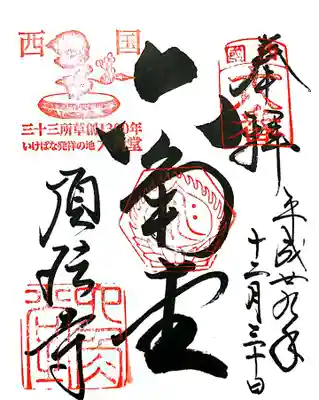 奉拝
平成廿九年
十二月三十日
六角堂
西国
三十三所草創1300年
いけばな発祥の地 六角堂
頂法寺